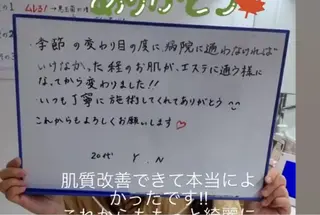 ありがとう
季節の変わり目の度に、病院に通わなければ
いけなかった経のお肌が、エステに通う様に
なってから変わりました!!
いつも丁寧に施術してくれてありがとう
これからもよろしくお願いします♡
2015 Y.N
肌質改善できて本当によ
かったです!!
これからももっと綺麗に